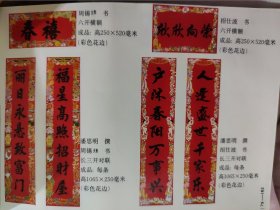 春禧
周锡㻛 书
六开横额
成品:高250×520毫米
(彩色花边)
欣欣向荣
胡仕波 书
六开横额
成品:高250×520毫米
(彩色花边)
福星高照招财屋
丽日永悬致富门
潘思明 撰
周锡㻛 书
长三开对联
成品:每条
高1065×250毫米
(彩色花边)
人逢盛世千家乐
户沐春阳万事兴
潘思明 撰
胡仕波 书
长三开对联
成品:每条
高1065×250毫米
(彩色花边)